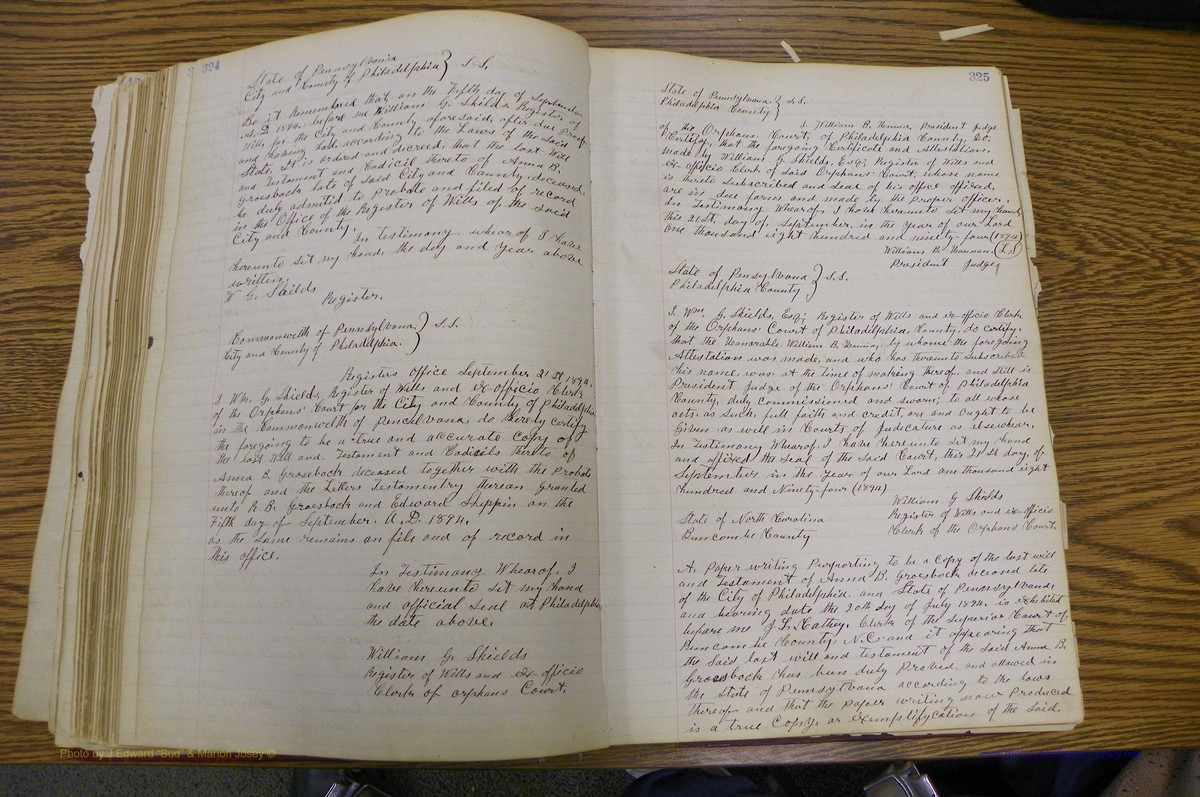 324
State of Pennsylvania
City and County of Philadelphia } S.S.
Be it Remembered that on the Fifth day of September
A.D. 1894, before me William G. Shields, Register of
Wills for the City and County aforesaid, after due Proof
and having had, according to the Laws of the said
State, It is ordered and decreed, that the last Will
and Testament and Codicil thereto of Anna B.
Groesbeck late of said City and County, deceased,
be duly admitted to Probate and filed of record
in the Office of the Register of Wills of the said
City and County.
In testimony whearof I have
hereunto set my hand, the day and year above
written.
W G. Shields
Register.
Commonwelth of Pennsylvania,
City and County of Philadelphia. } S.S.
Registers office September 21 st, 1894.
I Wm. G. Shields, Register of Wills and ex-officio Clerk
of the Orphans' Court for the City and County of Philadelphia
in the Commonwelth of Pennsylvania, do hereby certify
the foregoing to be a true and accurate copy of
the last Will and Testament and Codicils thereto of
Annea B. Groesbeck deceased together with the Probate
thereof and the Letters Testamentry thereon Granted
unto R. B. Groesbeck and Edward Shippin on the
Fifth day of September. A.D. 1894.
as the same remains on file and of record in
this office.
In Testimony Whearof, I
have hereunto set my hand
and official seal at Philadelphia
the date above.
William G. Shields
Register of Wills and ex-officio
Clerk of orphans Court.
325
State of Pennsylvania
Philadelphia County } S.S.
I, William B. Hanna, President Judge
of the Orphans' Court, of Philadelphia County, do.
Certify, that the foregoing Certificate and Attestation,
made by William G. Shields, Esq; Register of Wills and
ex-officio Clerk of said Orphans' Court, whose name
is thereto subscribed and seal of his office affixed,
are in due form and made by the proper officer.
In Testimony Whearof, I have hereunto set my hand,
this 21st day of September, in the year of our Lord
one thousand eight hundred and ninety-four (1894)
William B. Hannan, (L.S)
President Judge
State of Pensylvana
Philadelphia County } S.S.
I, Wm. G. Shields, Esq; Register of Wills and ex-officio Clerk
of the Orphans' Court of Philadelphia, County, do certify,
that the Honorable William B. Hanna, by whome the foregoing
Attestation was made, and who has thereunto subscribed
his name, was at the time of making thereof, and still is
President Judge of the Orphans' Court of Philadelphia
County, duly commissioned and sworn; to all whose
acts, as such, full faith and credit, are and ought to be
Given, as well in Courts of Judicature as elsewhear.
In Testimony Whearof, I have hereunto set my hand
and affixed the seal of the said Court, this 21 st day, of
September in the year of our Lord one thousand eight
hundred and Ninety-four (1894)
William G Shields
Register of Wills and ex-officio
Clerk of the Orphans Court.
State of North Carolina
Buncombe County
A. Paper writing Purporting to be a Copy of the last will
and Testament of Anna B. Groesbeck deceased late
of the City of Philadelphia. and State of Pennsylvana,
and bearing date the 20th day of July 1894, is exhibited
before me J. L. Cathey, Clerk of the Superior Court of
Buncombe County, N.C. and it appearing that
the said last will and testament of the said Anna B.
Groesbeck has been duly Proved, and allowed in
the State of Pennsylvana according to the laws
thereof and that the paper writing now Produced
is a true Copy or exemplifycation of the said.
Photo by J Edward "Bud" & Marion Josey ©